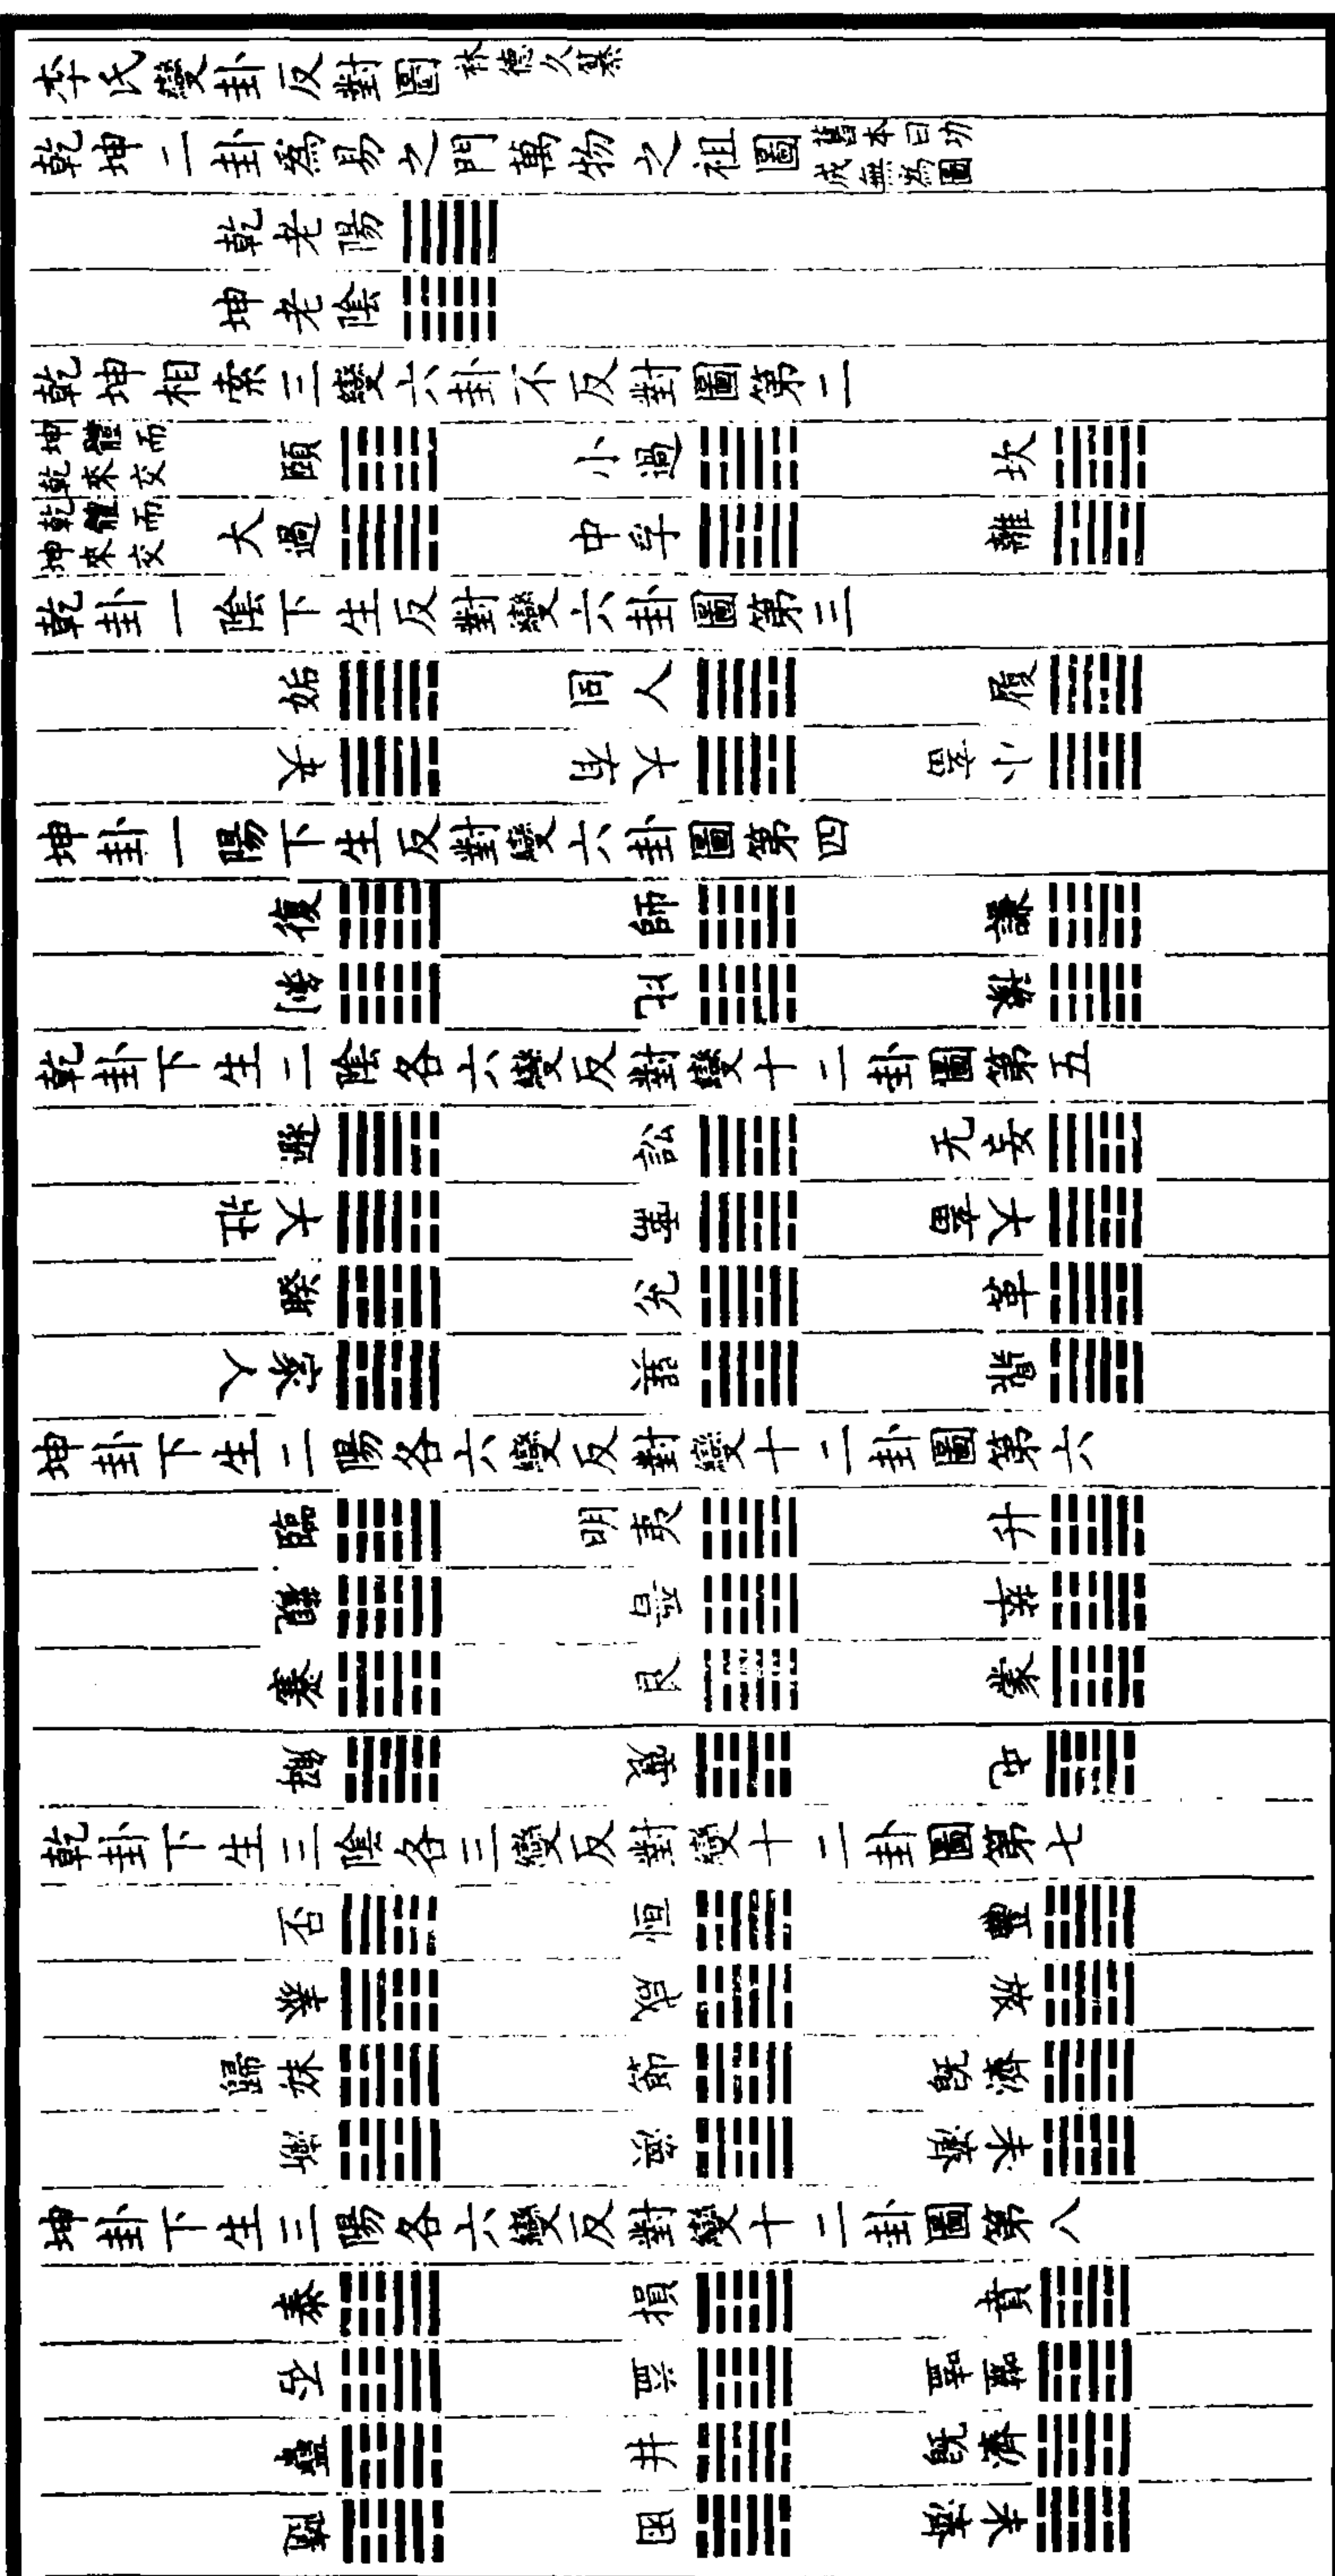 李氏變卦反對圖 林德久纂
乾坤二卦爲易之門萬物之祖圖 舊本曰功成無為圖
乾老陽
坤老陰
乾坤相索三變六卦不反對圖第二
坤體而乾來交 頤 小過 坎
乾體而坤來交 大過 中孚 離
乾卦一陰下生反對變六卦圖第三
姤 同人 履
夬 大有 小畜
坤卦一陽下生反對變六卦圖第四
復 師 謙
剝 比 豫
乾卦下生二陰各六變反對變十二卦圖第五
遯 訟 无妄
大壯 需 大畜
睽 兌 革
家人 巽 鼎
坤卦下生二陽各六變反對變十二卦圖第六
臨 明夷 升
觀 晉 萃
蹇 艮 蒙
解 震 屯
乾卦下生三陰各三變反對變十二卦圖第七
否 恒 豐
泰 咸 旅
歸妹 節 既濟
漸 渙 未濟
坤卦下生三陽各六變反對變十二卦圖第八
泰 損 賁
否 益 噬嗑
蠱 井 既濟
隨 困 未濟